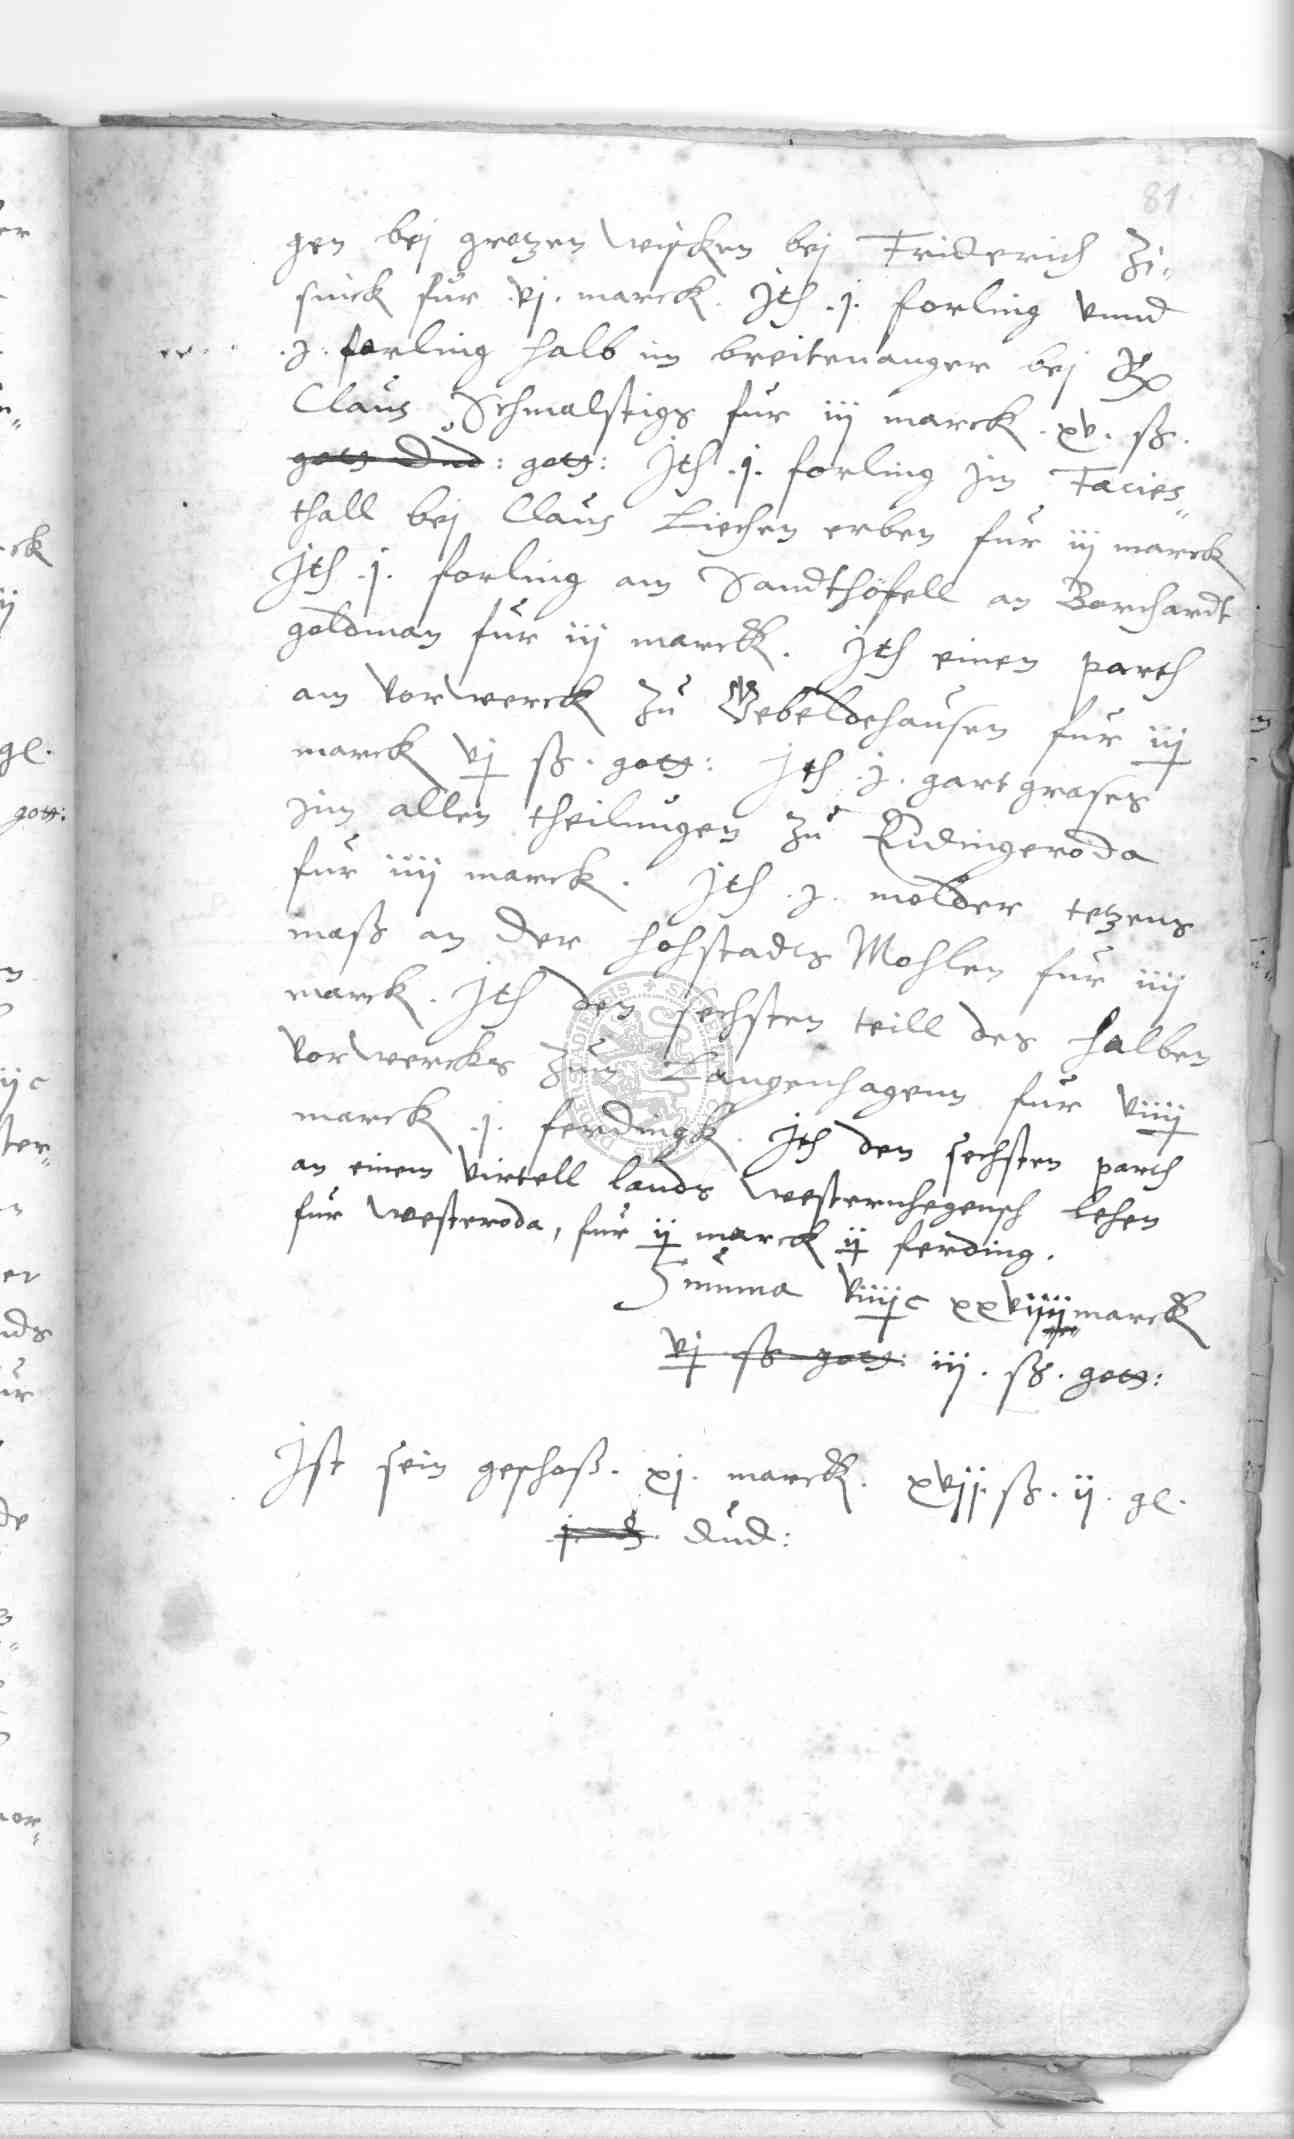 81
gen bej grotzen wischen bej Friderich Zi-
sinck fur .vj. marck. Jth .j. forling vnnd
.j. forling halb im breitenanger bej
Claus Schmalstigs fur iij marck .xv. sß.
gott: Jth .j. forling jm Facies-
thall bej Claus Liechen erben fur iij marck
Jth .j. forling am Sandthöfell an Borchardt
goldman fur iij marck. Jth einen parth
am vorwerck zu Gebeldehausen fur iij
marck vj sß. gott: Jth .j. gart grases
jnn allen theilungen zu Rudingeroda
fur iiij marck. Jth .j. molder tetzens
maß an der hohstadts Mohlen fur iiij
marck. Jth den sechsten teill des halben
vorwercks zum Langenhagenn fur viiij
marck .j. ferdingk. Jth den sechsten parth
an einem virtell lands westernhegensch lehen
fur westeroda, fur ij marck ij ferding.
Summa viiijc xxviiij marck
vj sß gott: iij. sß. gott:
Jst sein geschoß. xj. marck. xvij. sß. ij. gl.
dud: